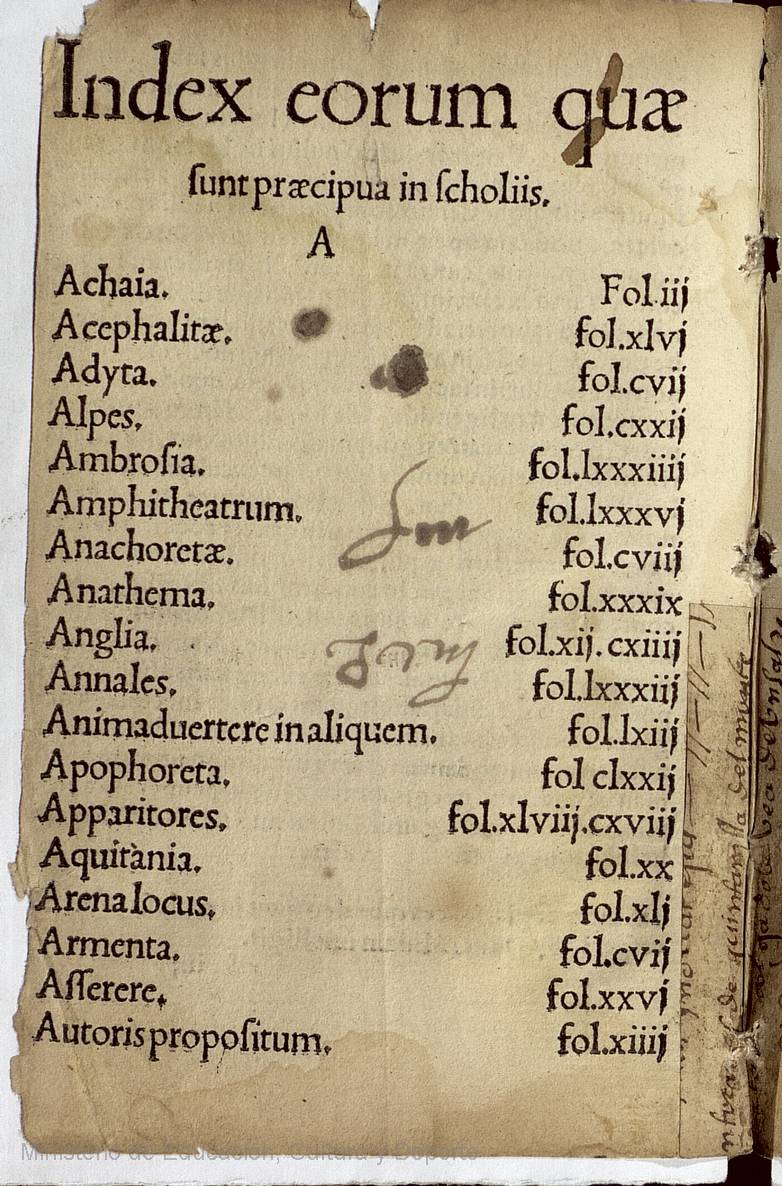 Index eorum quæ
ſunt præcipua in ſcholiis.
A
Achaia. Fol.iij
Acephalitæ. fol.xlvj
Adyta. fol.cvij
Alpes. fol.cxxij
Ambroſia. fol.lxxxiiij
Amphitheatrum. fol.lxxxvj
Anachoretæ. fol.cviij
Anathema. fol.xxxix
Anglia. fol.xij.cxiiij
Annales. fol.lxxxiij
Animaduertere in aliquem. fol.lxiij
Apophoreta. fol clxxij
Apparitores. fol.xlviij.cxviij
Aquitània. fol.xx
Arena locus. fol.xlj
Armenta. fol.cvij
Aſſerere. fol.xxvj
Autoris propoſitum. fol.xiiij
de quintanilla del monte
Ministerio de Educación, Cultura y Deporte